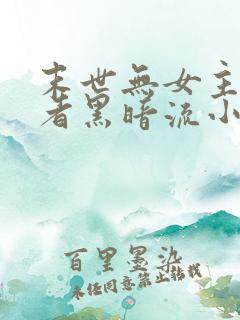 末世無女主
者黑暗流小
百里墨染
未经同意禁止转载